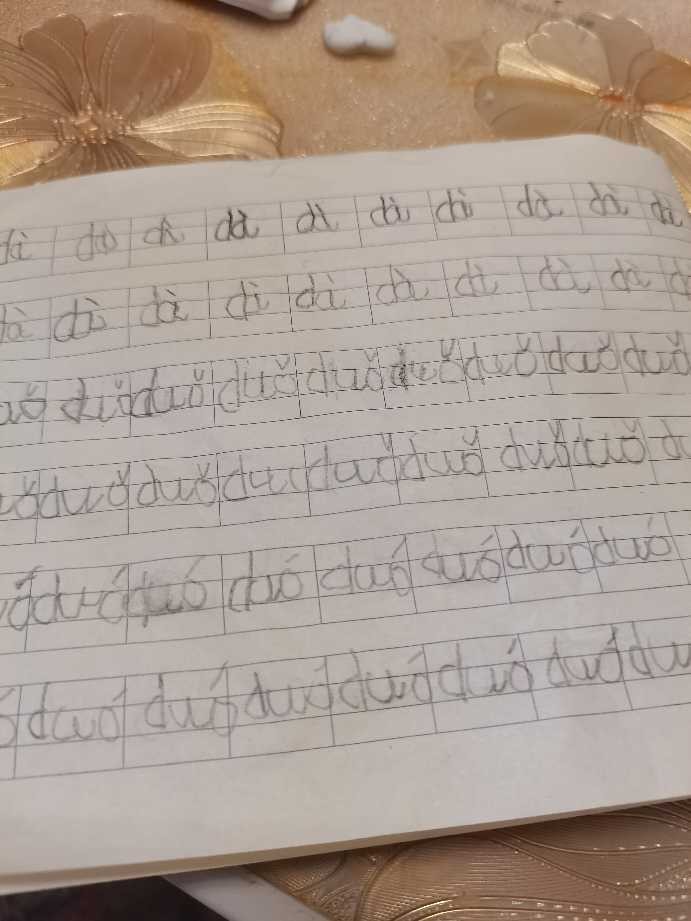 dà dà dà dà dà dà dà dà dà dà
dà dà dà dà dà dà dà dà dà
duǒ duǒ duǒ duǒ duǒ duǒ duǒ duǒ
duǒ duǒ duǒ duǒ duǒ duǒ duǒ
duó duó duó duó duó duó duó
duó duó duó duó duó duó